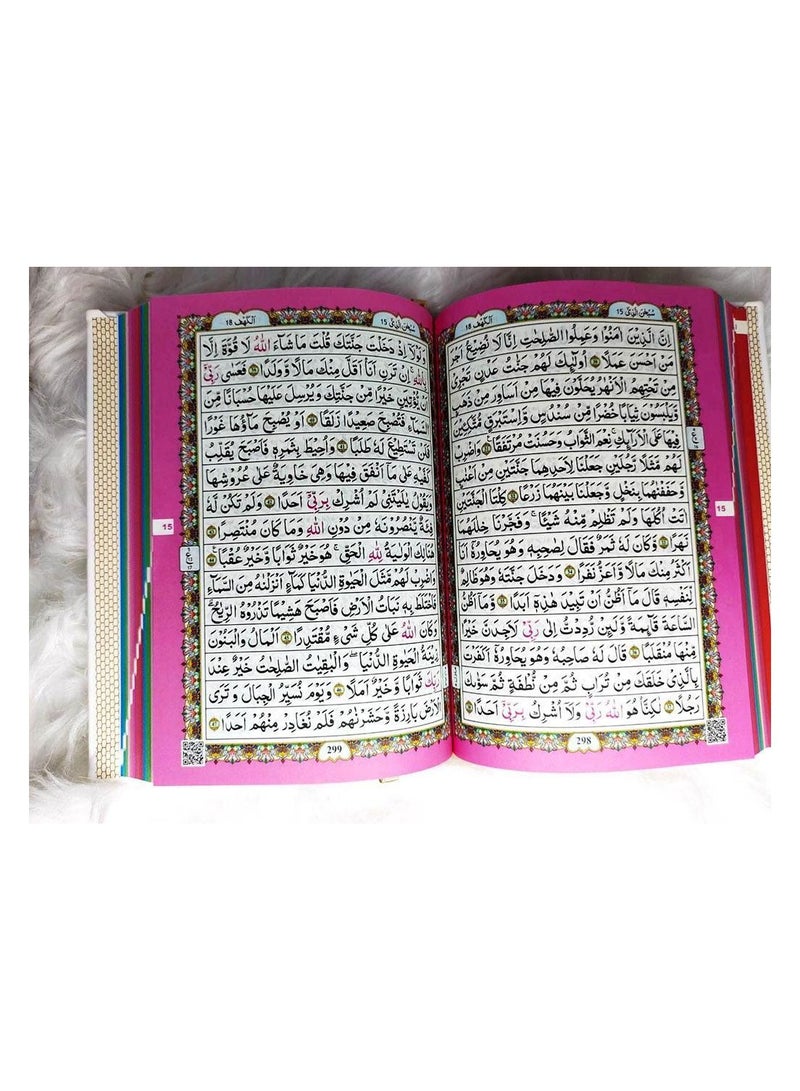 سُبْحٰنَ الَّذِیْ ١٥
اَلْكَهْف ١٨
اِنَّ الَّذِیْنَ اٰمَنُوْا وَعَمِلُوا الصّٰلِحٰتِ اِنَّا لَا نُضِیْعُ اَجْرَ
مَنْ اَحْسَنَ عَمَلًا ۝٣٠ اُولٰٓىِٕكَ لَهُمْ جَنّٰتُ عَدْنٍ تَجْرِیْ
مِنْ تَحْتِهِمُ الْاَنْهٰرُ یُحَلَّوْنَ فِیْهَا مِنْ اَسَاوِرَ مِنْ ذَهَبٍ
وَّیَلْبَسُوْنَ ثِیَابًا خُضْرًا مِّنْ سُنْدُسٍ وَّاِسْتَبْرَقٍ مُّتَّكِـِٕیْنَ
فِیْهَا عَلَی الْاَرَآىِٕكِ ؕ نِعْمَ الثَّوَابُ وَحَسُنَتْ مُرْتَفَقًا ۝٣١ وَاضْرِبْ
لَهُمْ مَّثَلًا رَّجُلَیْنِ جَعَلْنَا لِاَحَدِهِمَا جَنَّتَیْنِ مِنْ اَعْنَابٍ
وَّحَفَفْنٰهُمَا بِنَخْلٍ وَّجَعَلْنَا بَیْنَهُمَا زَرْعًا ۝٣٢ كِلْتَا الْجَنَّتَیْنِ
اٰتَتْ اُكُلَهَا وَلَمْ تَظْلِمْ مِّنْهُ شَیْـًٔا ۙ وَّفَجَّرْنَا خِلٰلَهُمَا
نَهَرًا ۝٣٣ وَّكَانَ لَهٗ ثَمَرٌ ۚ فَقَالَ لِصَاحِبِهٖ وَهُوَ یُحَاوِرُهٗۤ اَنَا
اَكْثَرُ مِنْكَ مَالًا وَّاَعَزُّ نَفَرًا ۝٣٤ وَدَخَلَ جَنَّتَهٗ وَهُوَ ظَالِمٌ
لِّنَفْسِهٖ ۚ قَالَ مَاۤ اَظُنُّ اَنْ تَبِیْدَ هٰذِهٖۤ اَبَدًا ۝٣٥ وَّمَاۤ اَظُنُّ
السَّاعَةَ قَآىِٕمَةً ۙ وَّلَىِٕنْ رُّدِدْتُّ اِلٰی رَبِّیْ لَاَجِدَنَّ خَیْرًا
مِّنْهَا مُنْقَلَبًا ۝٣٦ قَالَ لَهٗ صَاحِبُهٗ وَهُوَ یُحَاوِرُهٗۤ اَكَفَرْتَ
بِالَّذِیْ خَلَقَكَ مِنْ تُرَابٍ ثُمَّ مِنْ نُّطْفَةٍ ثُمَّ سَوّٰىكَ
رَجُلًا ۝٣٧ لٰكِنَّا۠ هُوَ اللّٰهُ رَبِّیْ وَلَاۤ اُشْرِكُ بِرَبِّیْۤ اَحَدًا ۝٣٨
15
298
سُبْحٰنَ الَّذِیْ ١٥
اَلْكَهْف ١٨
وَلَوْلَاۤ اِذْ دَخَلْتَ جَنَّتَكَ قُلْتَ مَا شَآءَ اللّٰهُ ۙ لَا قُوَّةَ اِلَّا
بِاللّٰهِ ۚ اِنْ تَرَنِ اَنَا اَقَلَّ مِنْكَ مَالًا وَّوَلَدًا ۝٣٩ فَعَسٰی رَبِّیْۤ
اَنْ یُّؤْتِیَنِ خَیْرًا مِّنْ جَنَّتِكَ وَیُرْسِلَ عَلَیْهَا حُسْبَانًا مِّنَ
السَّمَآءِ فَتُصْبِحَ صَعِیْدًا زَلَقًا ۝٤٠ اَوْ یُصْبِحَ مَآؤُهَا غَوْرًا
فَلَنْ تَسْتَطِیْعَ لَهٗ طَلَبًا ۝٤١ وَاُحِیْطَ بِثَمَرِهٖ فَاَصْبَحَ یُقَلِّبُ
كَفَّیْهِ عَلٰی مَاۤ اَنْفَقَ فِیْهَا وَهِیَ خَاوِیَةٌ عَلٰی عُرُوْشِهَا
وَیَقُوْلُ یٰلَیْتَنِیْ لَمْ اُشْرِكْ بِرَبِّیْۤ اَحَدًا ۝٤٢ وَلَمْ تَكُنْ لَّهٗ
فِئَةٌ یَّنْصُرُوْنَهٗ مِنْ دُوْنِ اللّٰهِ وَمَا كَانَ مُنْتَصِرًا ۝٤٣
هُنَالِكَ الْوَلَایَةُ لِلّٰهِ الْحَقِّ ؕ هُوَ خَیْرٌ ثَوَابًا وَّخَیْرٌ عُقْبًا ۝٤٤
وَاضْرِبْ لَهُمْ مَّثَلَ الْحَیٰوةِ الدُّنْیَا كَمَآءٍ اَنْزَلْنٰهُ مِنَ السَّمَآءِ
فَاخْتَلَطَ بِهٖ نَبَاتُ الْاَرْضِ فَاَصْبَحَ هَشِیْمًا تَذْرُوْهُ الرِّیٰحُ ؕ
وَكَانَ اللّٰهُ عَلٰی كُلِّ شَیْءٍ مُّقْتَدِرًا ۝٤٥ اَلْمَالُ وَالْبَنُوْنَ
زِیْنَةُ الْحَیٰوةِ الدُّنْیَا ۚ وَالْبٰقِیٰتُ الصّٰلِحٰتُ خَیْرٌ عِنْدَ
رَبِّكَ ثَوَابًا وَّخَیْرٌ اَمَلًا ۝٤٦ وَیَوْمَ نُسَیِّرُ الْجِبَالَ وَتَرَی
الْاَرْضَ بَارِزَةً ۙ وَّحَشَرْنٰهُمْ فَلَمْ نُغَادِرْ مِنْهُمْ اَحَدًا ۝٤٧
15
299